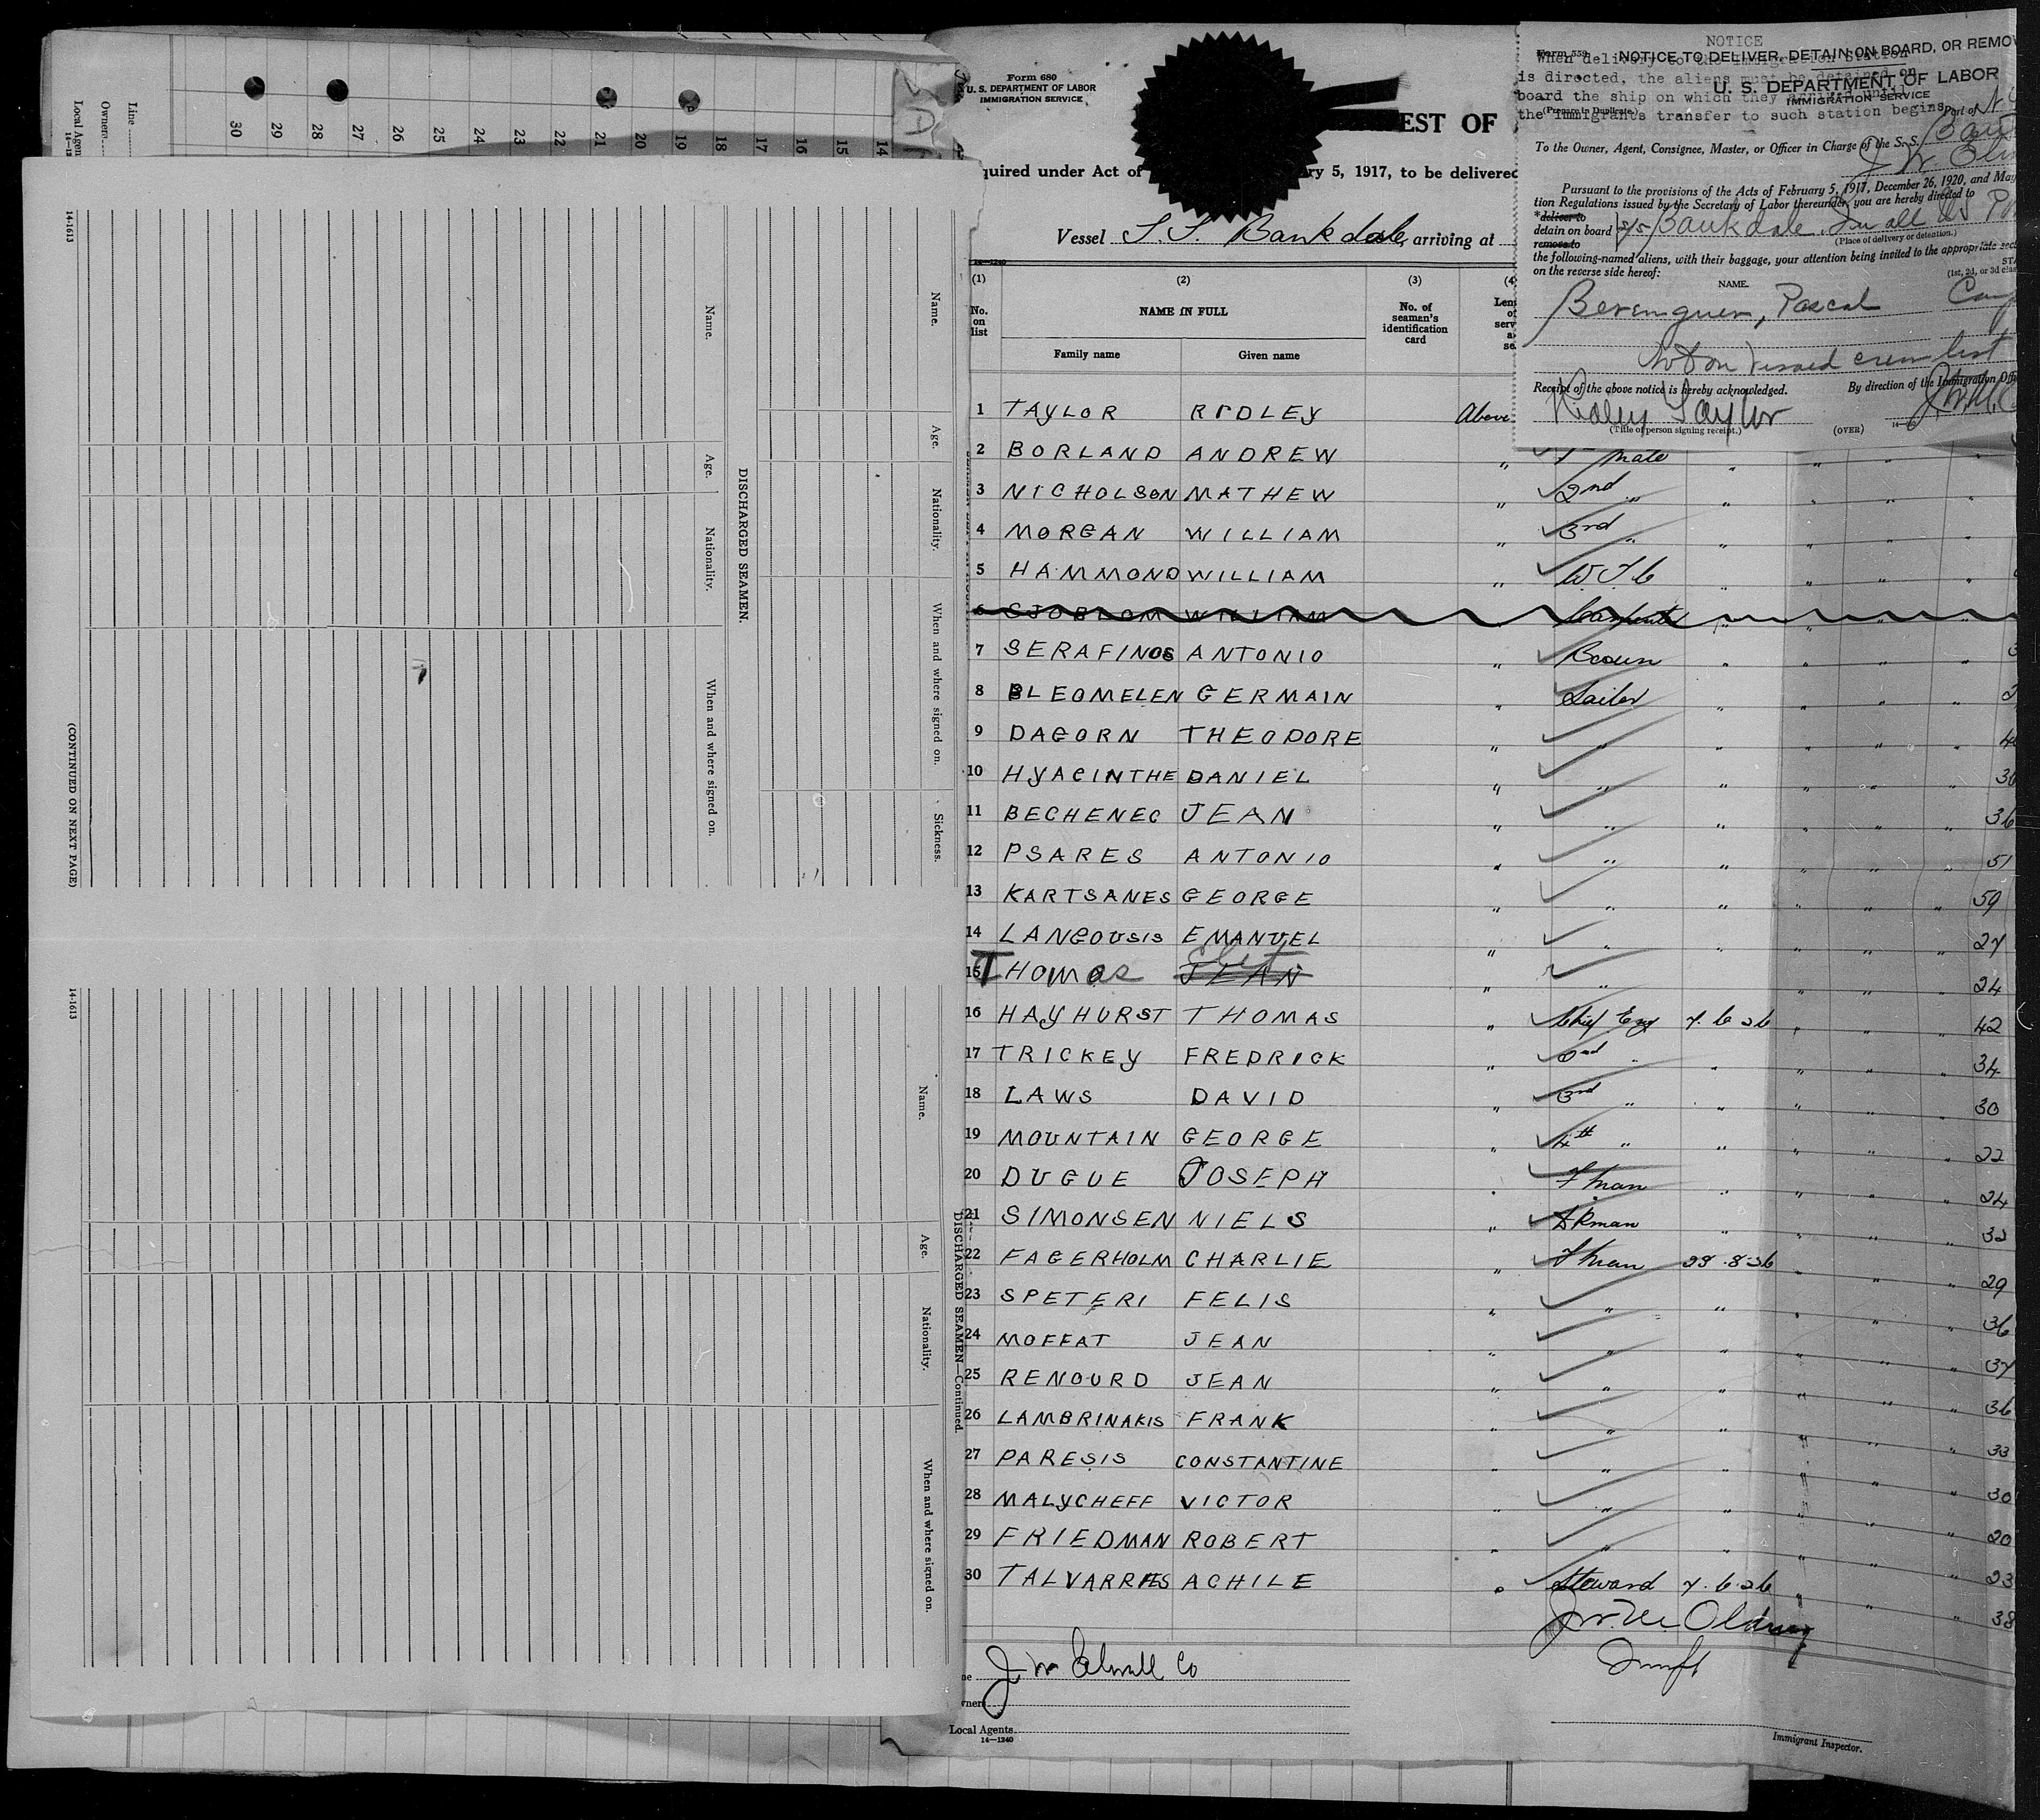 Line
Owners
Local Agen
30 29 28 27 26 25 24 23 22 21 20 19 18 17 16 15 14
14-1613
Name.
Age.
Nationality.
When and where signed on.
Sickness.
DISCHARGED SEAMEN.
Name.
Age.
Nationality.
When and where signed on.
(CONTINUED ON NEXT PAGE)
14-1613
Name.
Age.
Nationality.
When and where signed on.
DISCHARGED SEAMEN—Continued.
Form 680
U. S. DEPARTMENT OF LABOR
IMMIGRATION SERVICE
EST OF
quired under Act of ry 5, 1917, to be delivered
Vessel S.S. Bankdale, arriving at
NOTICE
When delivery to the Immigration Station
is directed, the aliens must be detained on
board the ship on which they arrived until
the immigrant's transfer to such station begins.
Form 559
NOTICE TO DELIVER, DETAIN ON BOARD, OR REMOV
U. S. DEPARTMENT OF LABOR
IMMIGRATION SERVICE
(Prepare in Duplicate)
Port of N.
To the Owner, Agent, Consignee, Master, or Officer in Charge of the S. S.
Pursuant to the provisions of the Acts of February 5, 1917, December 26, 1920, and May
tion Regulations issued by the Secretary of Labor thereunder, you are hereby directed to
*deliver to
detain on board S/S Bankdale In all US Po
remove to
(Place of delivery or detention.)
the following-named aliens, with their baggage, your attention being invited to the appropriate sec
on the reverse side hereof:
(1st, 2d, or 3d clas
NAME.
Berenguer, Pascal
Not on visaed crew list
Receipt of the above notice is hereby acknowledged.
By direction of the Immigration Offi
Ridley Taylor
(Title of person signing receipt.)
(OVER)
(1) (2) (3) (4
No. on list
NAME IN FULL
No. of seaman's identification card
Family name Given name
1 TAYLOR RIDLEY Above
2 BORLAND ANDREW " 1st Mate " " " "
3 NICHOLSON MATHEW " 2nd " " " " "
4 MORGAN WILLIAM " 3rd " " " " "
5 HAMMOND WILLIAM " W.T.O " " " "
6 SJOBLOM WILLIAM " Carpenter " " " "
7 SERAFINOS ANTONIO " Bosun " " " " 3
8 BLEOMELEN GERMAIN " Sailor " " " "
9 DAGORN THEODORE " " " " " " 4
10 HYACINTHE DANIEL " " " " " " 36
11 BECHENEC JEAN " " " " " " 36
12 PSARES ANTONIO " " " " " " 51
13 KARTSANES GEORGE " " " " " " 59
14 LANGOUSIS EMANUEL " " " " " " 27
15 THOMAS JEAN " " " " " 24
16 HAYHURST THOMAS " Chief Eng 7.6.26 " " " 42
17 TRICKEY FREDRICK " 2nd " " " " " 34
18 LAWS DAVID " 3rd " " " " " 30
19 MOUNTAIN GEORGE " 4th " " " " " 22
20 DUGUE JOSEPH " Fman " " " " 24
21 SIMONSEN NIELS " DKman " " " " 32
22 FAGERHOLM CHARLIE " Fman 28.8.26 " " " 29
23 SPETERI FELIS " " " " " " 36
24 MOFFAT JEAN " " " " " " 37
25 RENOURD JEAN " " " " " " 36
26 LAMBRINAKIS FRANK " " " " " " 33
27 PARESIS CONSTANTINE " " " " " " 30
28 MALYCHEFF VICTOR " " " " " " 20
29 FRIEDMAN ROBERT " " " " " " 23
30 TALVARRIES ACHILE " Steward 7.6.26 " " " 38
J W Elwell Co
Local Agents
14—1240
Immigrant Inspector.